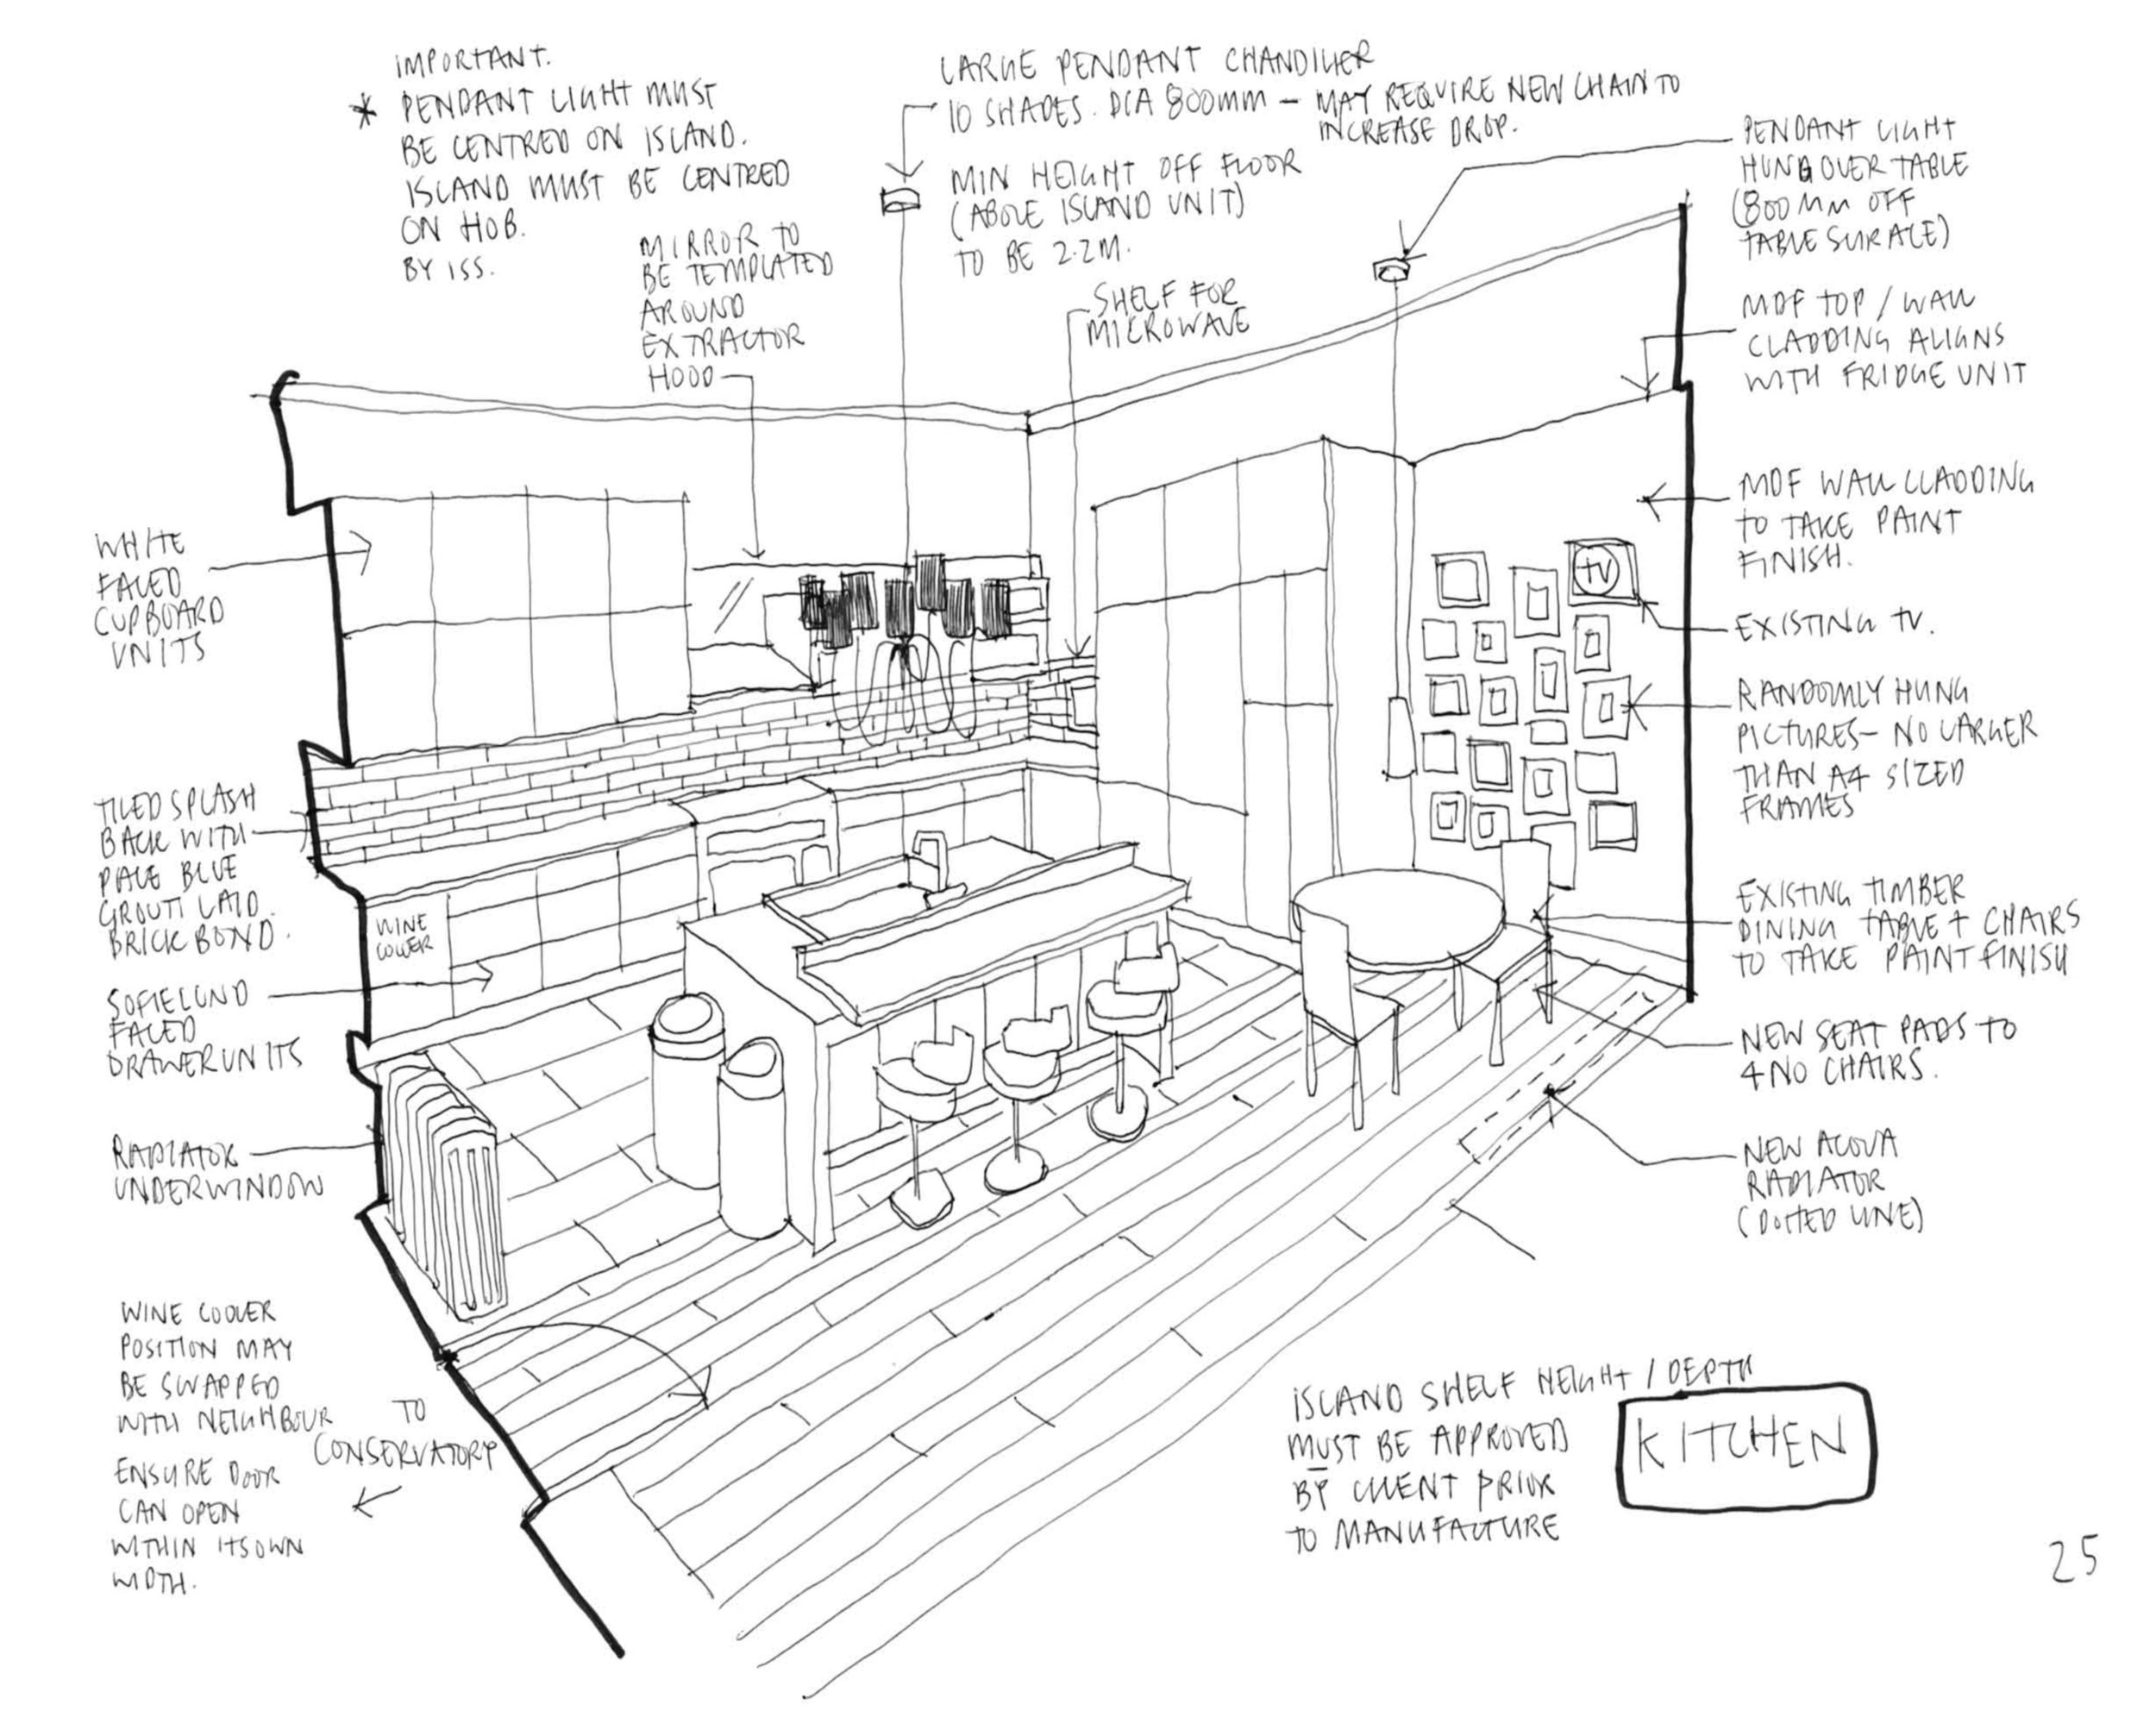 IMPORTANT.
* PENDANT LIGHT MUST
BE CENTRED ON ISLAND.
ISLAND MUST BE CENTRED
ON HOB.
BY ISS.
LARGE PENDANT CHANDILIER
10 SHADES. DIA 800MM – MAY REQUIRE NEW CHAIN TO
INCREASE DROP.
MIN HEIGHT OFF FLOOR
(ABOVE ISLAND UNIT)
TO BE 2.2M.
MIRROR TO
BE TEMPLATED
AROUND
EXTRACTOR
HOOD
SHELF FOR
MICROWAVE
PENDANT LIGHT
HUNG OVER TABLE
(800MM OFF
TABLE SURFACE)
MDF TOP / WALL
CLADDING ALIGNS
WITH FRIDGE UNIT
MDF WALL CLADDING
TO TAKE PAINT
FINISH.
TV
EXISTING TV.
RANDOMLY HUNG
PICTURES – NO LARGER
THAN A4 SIZED
FRAMES
EXISTING TIMBER
DINING TABLE + CHAIRS
TO TAKE PAINT FINISH
NEW SEAT PADS TO
4NO CHAIRS.
NEW ACOVA
RADIATOR
(DOTTED LINE)
WHITE
FACED
CUPBOARD
UNITS
TILED SPLASH
BACK WITH
PALE BLUE
GROUT LAID
BRICK BOND.
WINE
COOLER
SOFIELUND
FACED
DRAWER UNITS
RADIATOR
UNDER WINDOW
WINE COOLER
POSITION MAY
BE SWAPPED
WITH NEIGHBOUR
ENSURE DOOR
CAN OPEN
WITHIN ITS OWN
WIDTH.
TO
CONSERVATORY
ISLAND SHELF HEIGHT / DEPTH
MUST BE APPROVED
BY CLIENT PRIOR
TO MANUFACTURE
KITCHEN
25